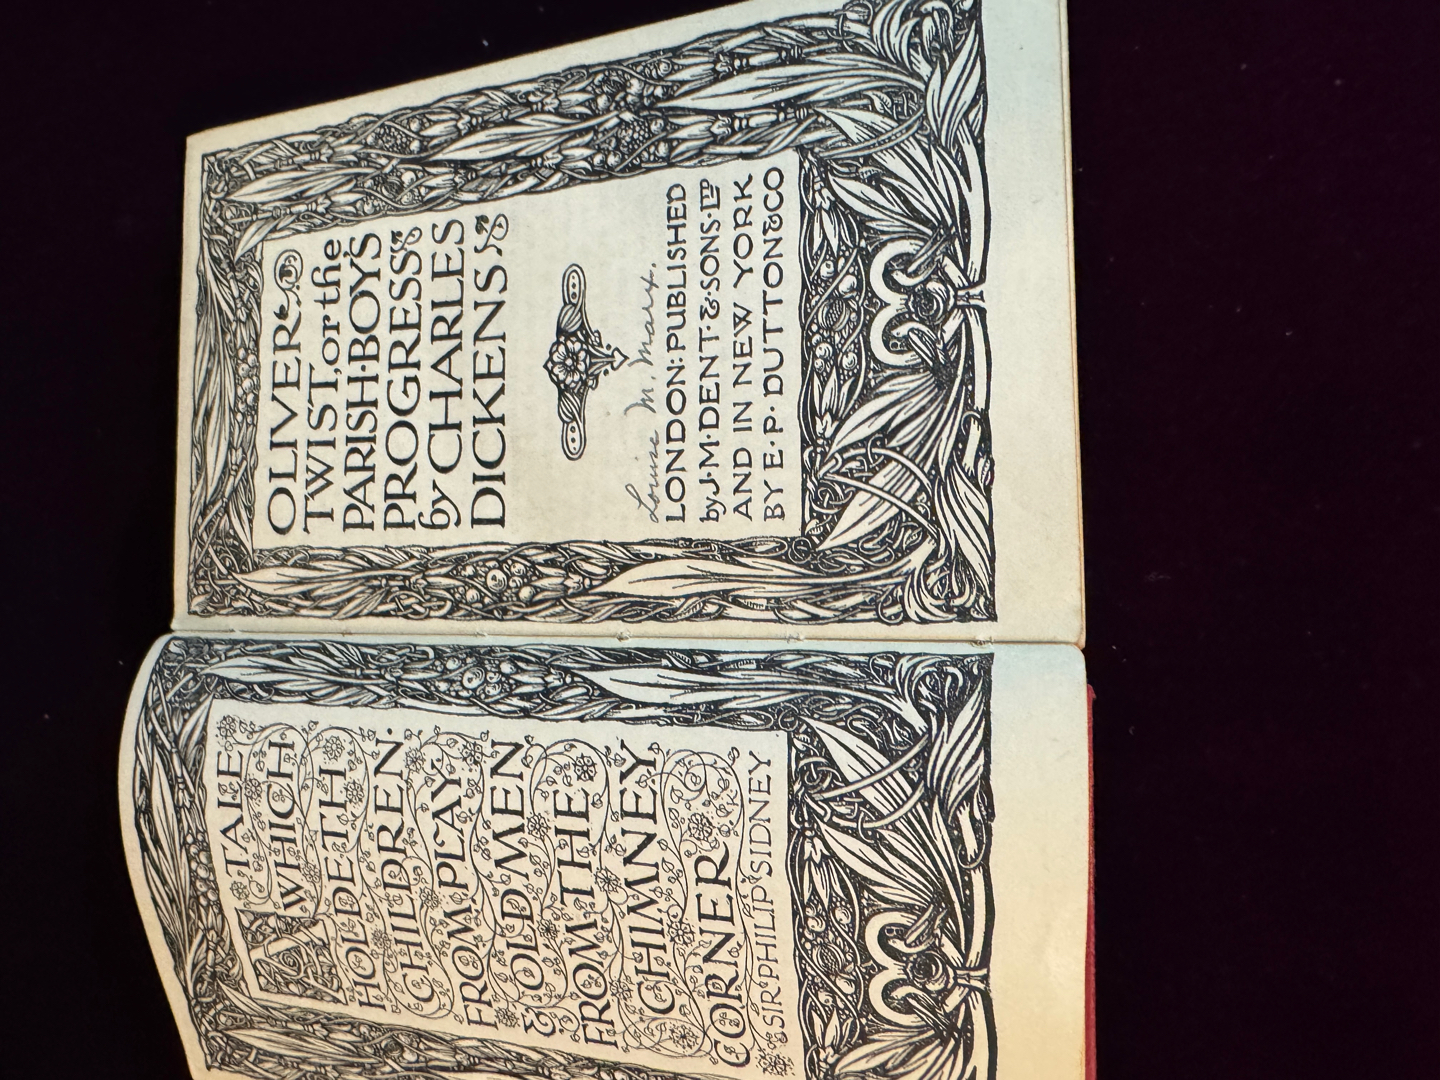 A TALE
WHICH
HOLDETH
CHILDREN
FROM PLAY
& OLD MEN
FROM THE
CHIMNEY
CORNER
SIR PHILIP SIDNEY
OLIVER
TWIST, or the
PARISH·BOY'S
PROGRESS
by CHARLES
DICKENS
Louise M. Marx.
LONDON: PUBLISHED
by J·M·DENT·&·SONS·LTD
AND IN NEW YORK
BY E·P·DUTTON & CO